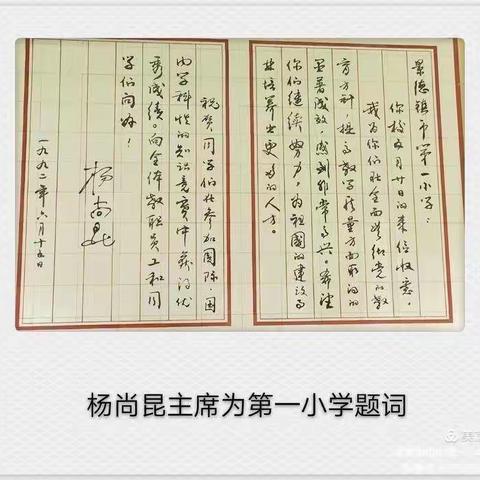 景德镇市第一小学：
你校五月廿日的来信收悉，
我为你们在全面贯彻党的教
育方针，提高教学质量方面取得的
显著成效，感到非常高兴。希望
你们继续努力，为祖國的建设事
业培养出更多的人才。
祝贺同学们在参加国际、国
内学科性的知识竞赛中获得优
秀成绩。向全体教职员工和同
学们问好！
杨尚昆
一九九二年六月十五日
杨尚昆主席为第一小学题词